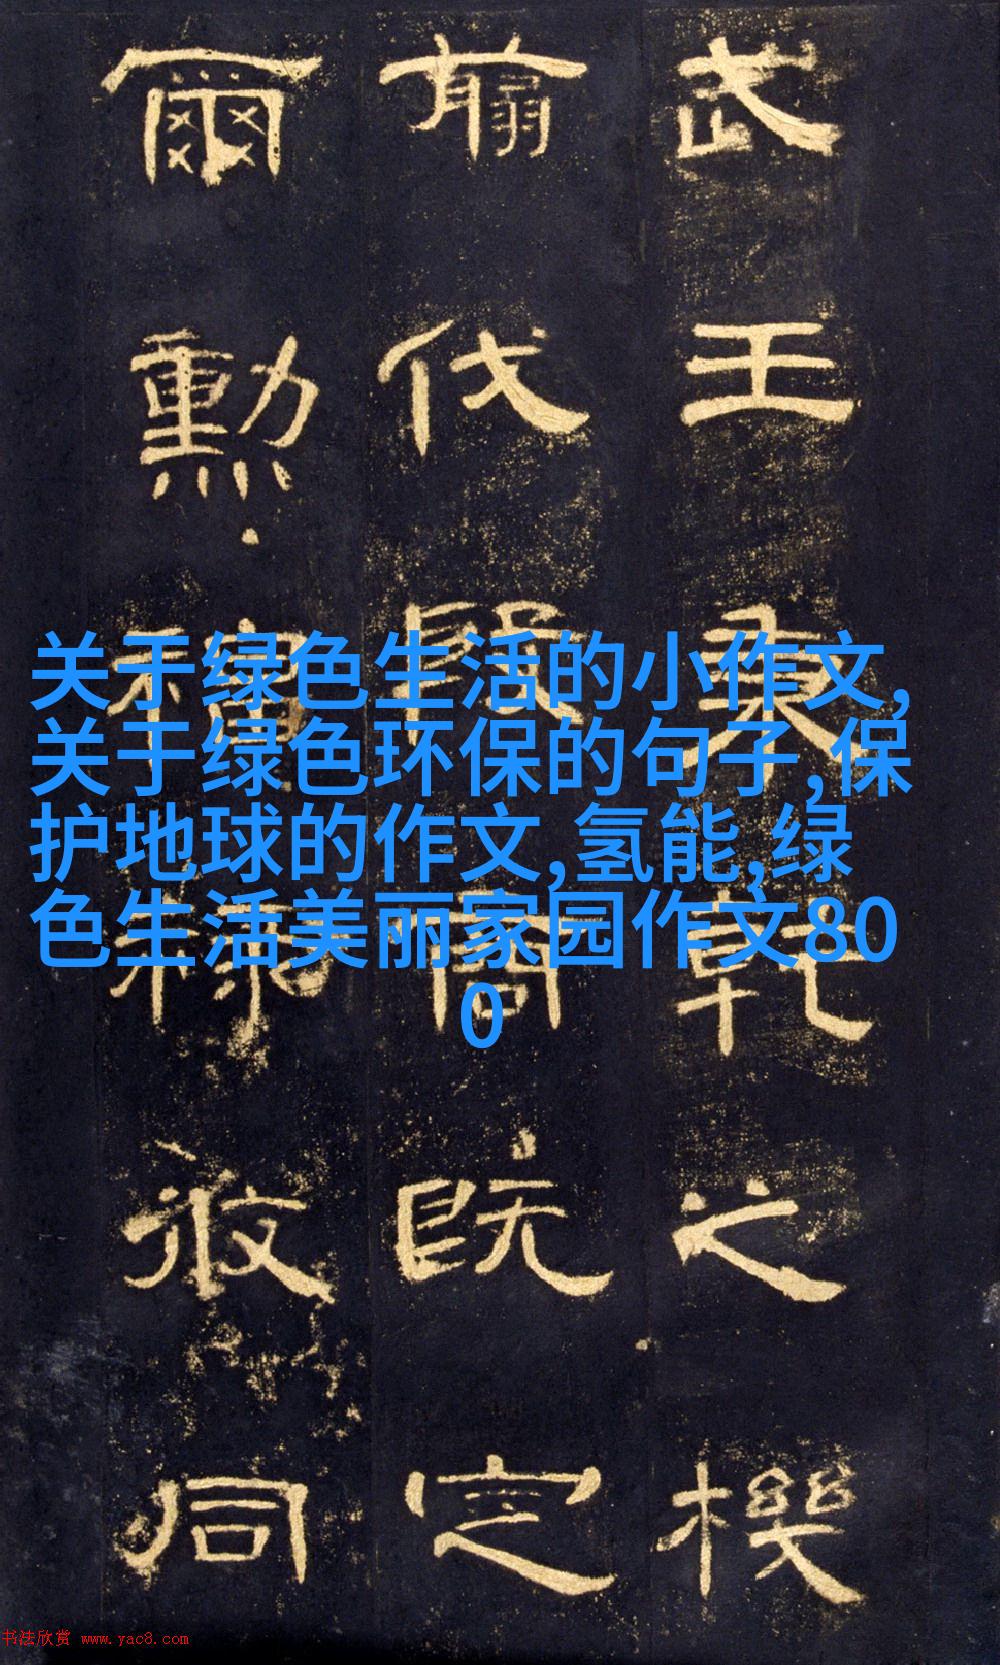 武王秉乾之機
翦伐殷商既定
爾勳福祿攸同
关于绿色生活的小作文,
关于绿色环保的句子,保
护地球的作文,氢能,绿
色生活美丽家园作文80
0
书法欣赏 www.yac8.com